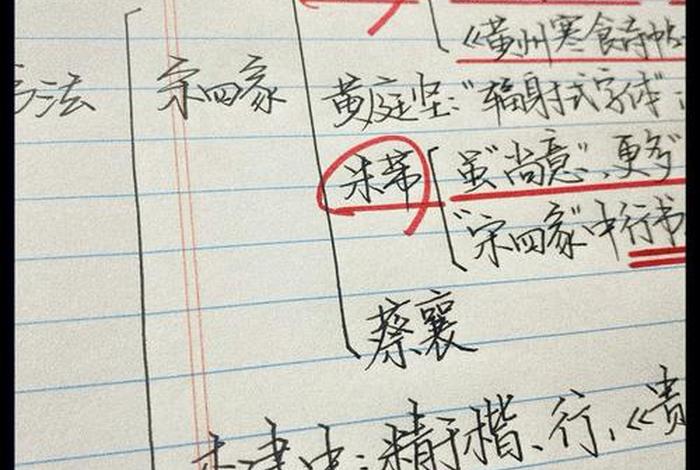 《黄州寒食诗帖
书法
宋四家
黄庭坚:“辐射式字体”;
米芾
虽“尚意”,更多
“宋四家”中行书
蔡襄
:精于楷、行,《贵